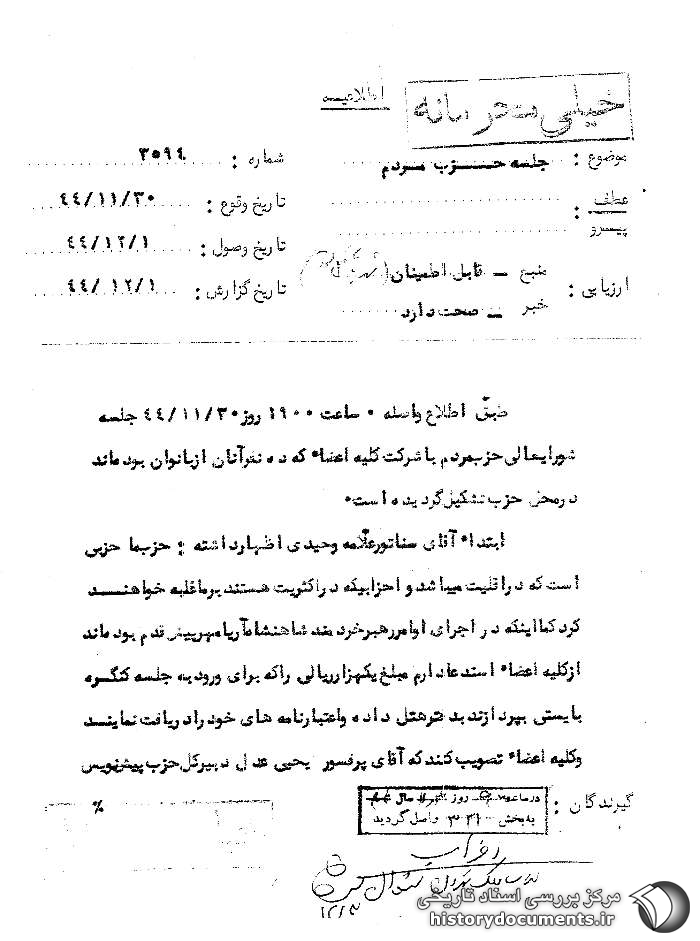 خیلی محرمانه
اطلاعیه
موضوع : جلسه حزب مردم
شماره : ۳۵۹٤
عطف :
پیسرو
تاریخ وقوع : ٤٤/۱۱/۳۰
تاریخ وصول : ٤٤/۱۲/۱
ارزیابی : منبع ــ قابل اطمینان
تاریخ گزارش : ٤٤/۱۲/۱
خبر ــ صحت دارد
طبق اطلاع واصله ۰ ساعت ۱۹۰۰ روز ٤٤/۱۱/۳۰ جلسه
شورایعالی حزب مردم با شرکت کلیه اعضاء که ده نفر آنان از بانوان بوده اند
در محل حزب تشکیل گردیده است۰
ابتداء آقای سناتور علامه وحیدی اظهار داشته : حزب ما حزبی
است که در اقلیت میباشد و احزابیکه در اکثریت هستند بر ما غلبه خواهند
کرد کما اینکه در اجرای اوامر رهبر خردمند شاهنشاه آریامهر پیش قدم بوده اند
از کلیه اعضاء استدعا دارم مبلغ یکهزار ریالی را که برای ورود به جلسه کنگره
بایستی بپردازند بدفتر هتل داده و اعتبارنامه های خود را دریافت نمایند
و کلیه اعضاء تصویب کنند که آقای پرفسور یحیی عدل دبیرکل حزب پیشنویس
گیرندگان :
٪
روز
به بخش ۳۲۱ واصل گردید
۱۲/۳
مرکز بررسی اسناد تاریخی
historydocuments.ir